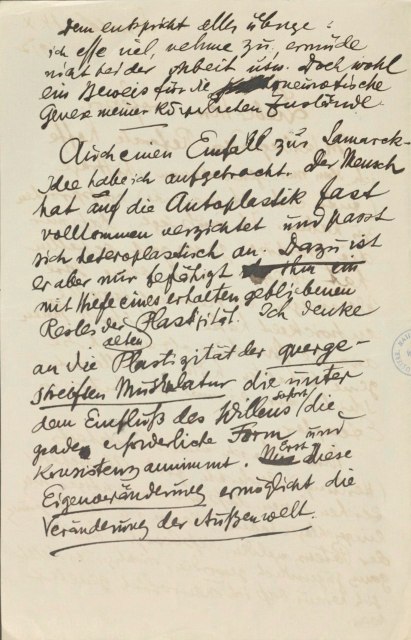 Dem entspricht alles übrige:
ich esse viel, nehme zu, ermüde
nicht bei der Arbeit usw. Doch wohl
ein Beweis für die neurotische
Genese meiner körperlichen Zustände.
Auch einen Einfall zur Lamarck-
Idee habe ich aufgebracht. Der Mensch
hat auf die Autoplastik fast
vollkommen verzichtet und passt
sich heteroplastisch an. Dazu ist
er aber nur befähigt
mit Hilfe eines erhalten gebliebenen
Restes der alten Plastizität. Ich denke
an die Plastizität der querge-
streiften Muskulatur die unter
dem Einfluß des Willens sofort die
grade erforderliche Form und
Konsistenz annimmt. Erst diese
Eigenveränderung ermöglicht die
Veränderung der Außenwelt.